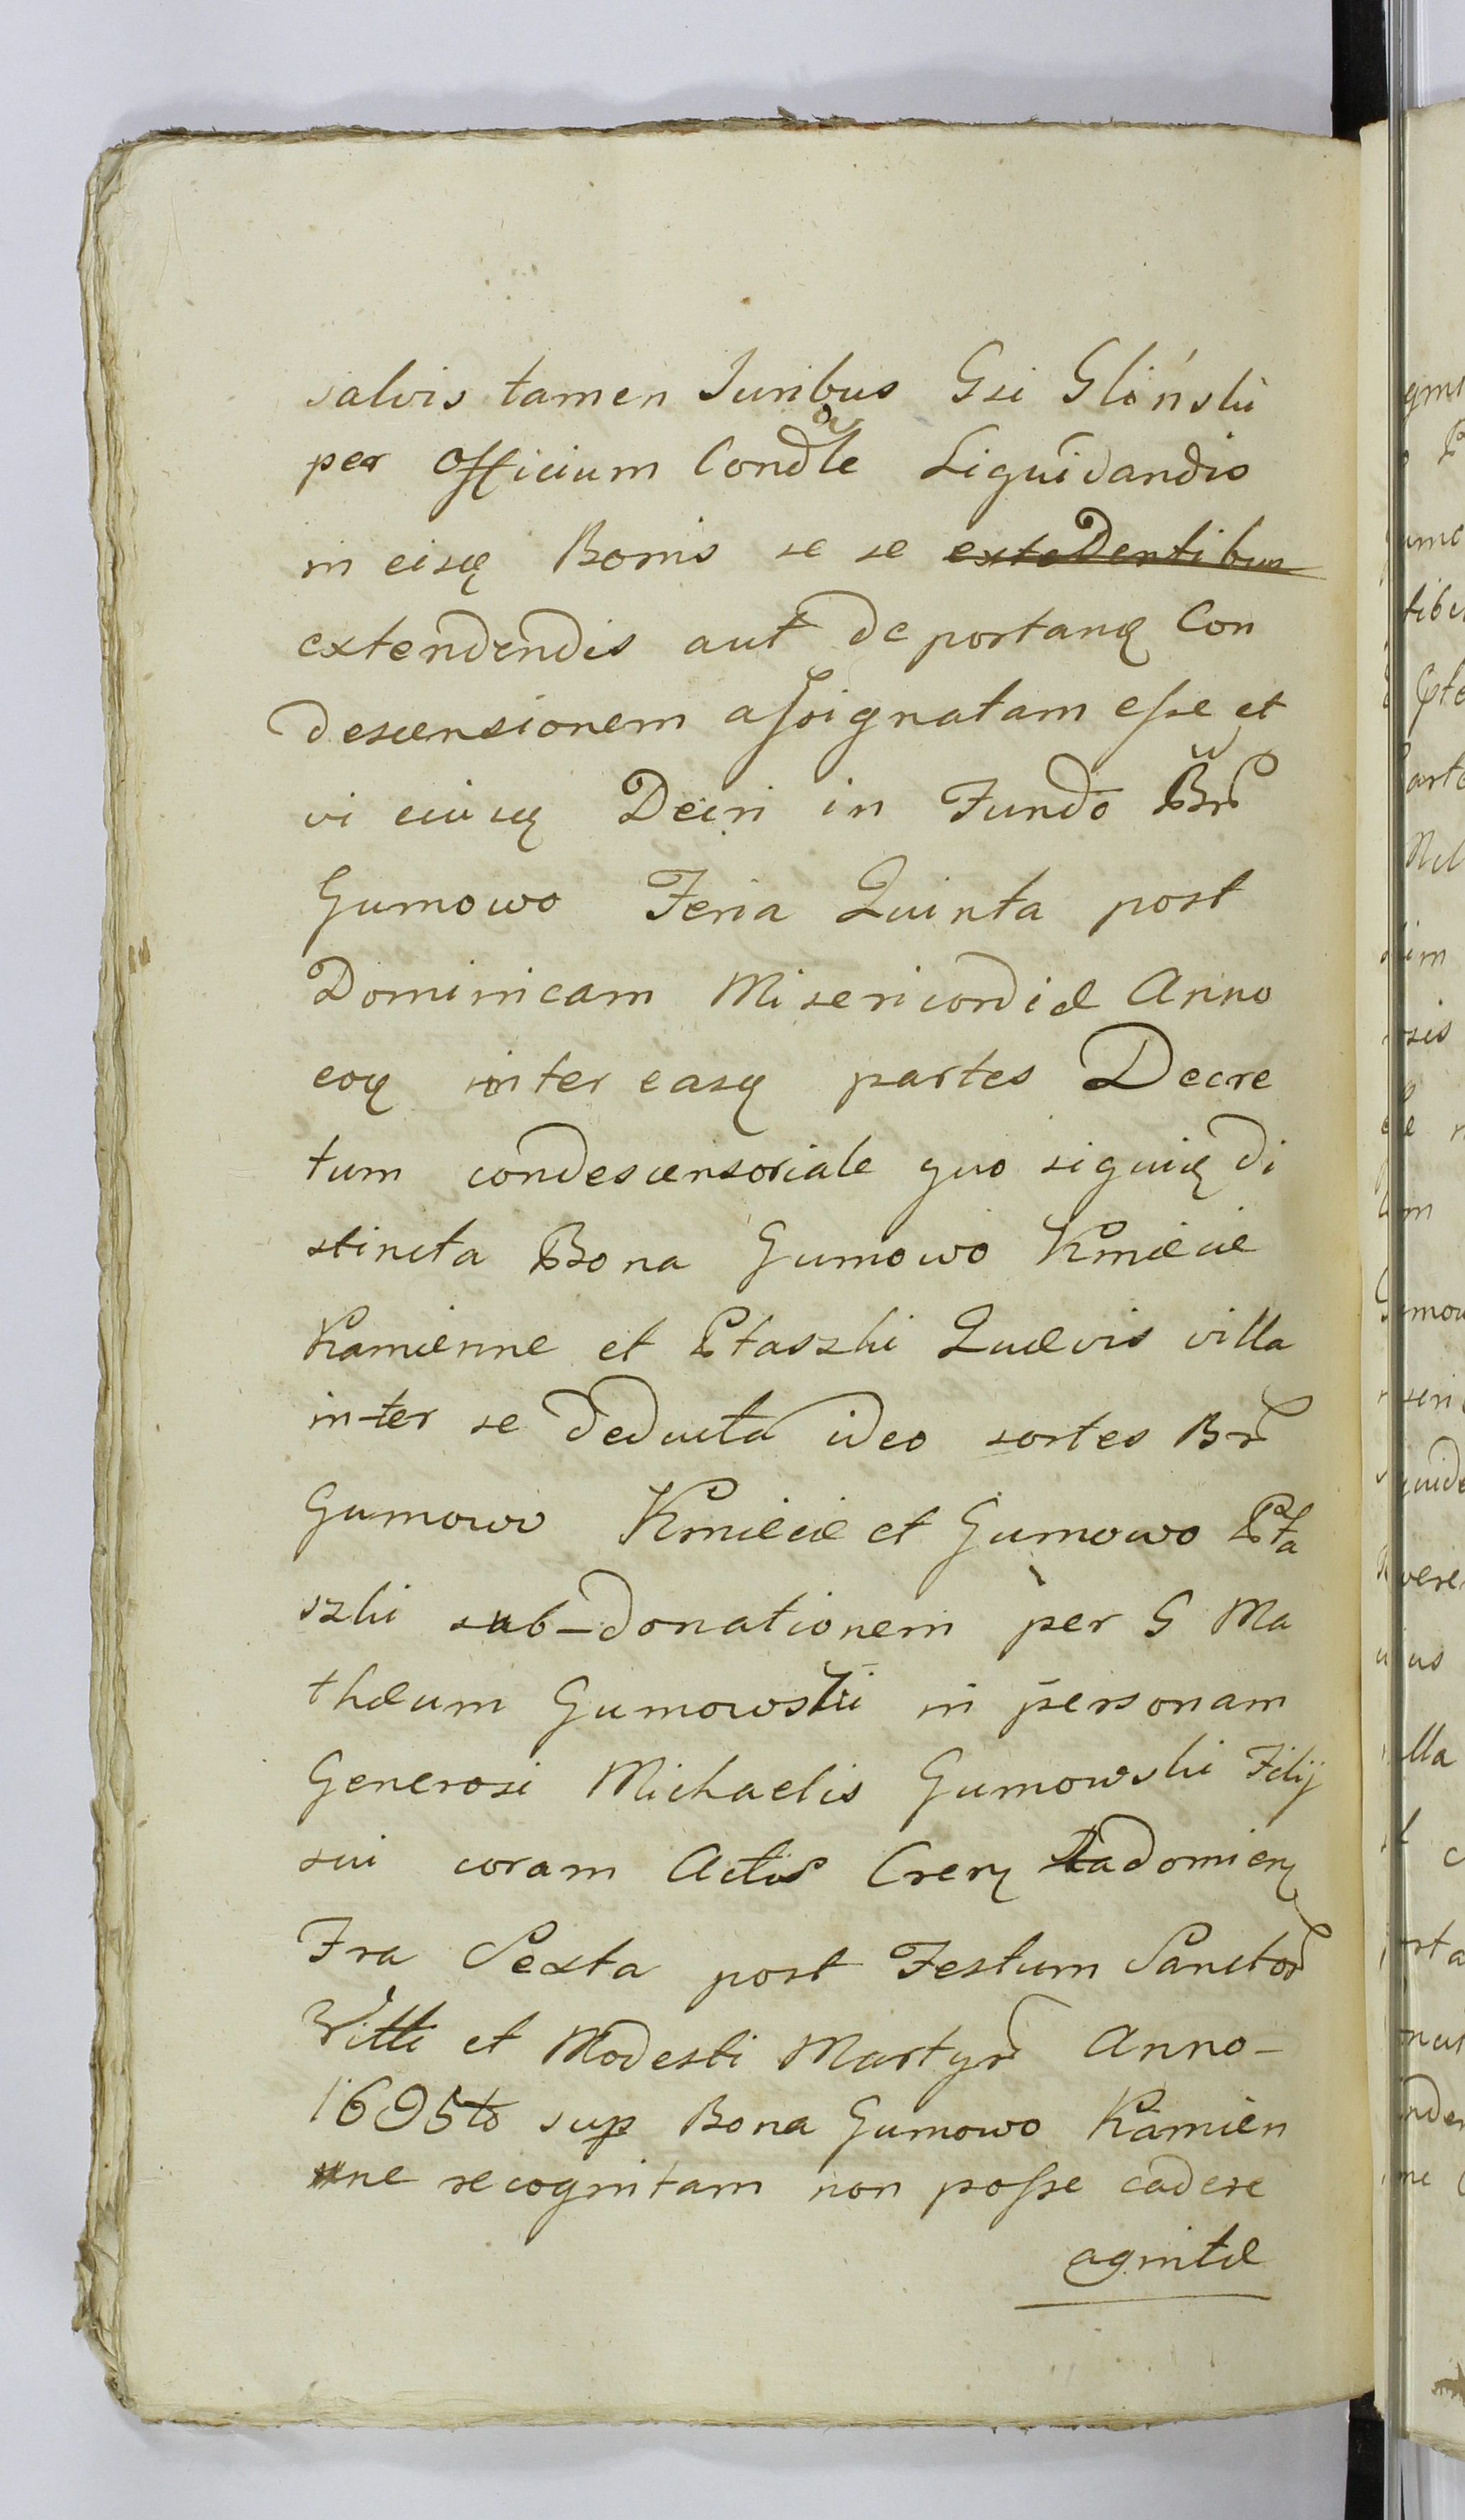 salvis tamen Juribus Gsi Gliński
per Officium Condłe Liquidandis
in eisq Bonis se se extedentibus
extendendis aut deportanq Con
descensionem assignatam esse et
vi cuiusq Decri in Fundo Brŭ
Gumowo Feria Quinta post
Dominicam Misericordiæ Anno
eoq inter easq partes Decre
tum condescensoriale quo siquiq di
stincta Bona Gumowo Kmiecie
Kamienne et Ptaszki Quævis villa
inter se deducta ideo sortes Br
Gumowo Kmiecie et Gumowo Pta
szki sub-donationem per G Ma
thæum Gumowski in personam
Generosi Michaelis Gumowski Filij
sui coram Actis Crerŋ Radomienŋ
Fra Sexta post Festum Sanctor
Witti et Modesti Martyr Anno-
1695to sup Bona Gumowo Kamien
ne recognitam non posse cadere
agnitæ